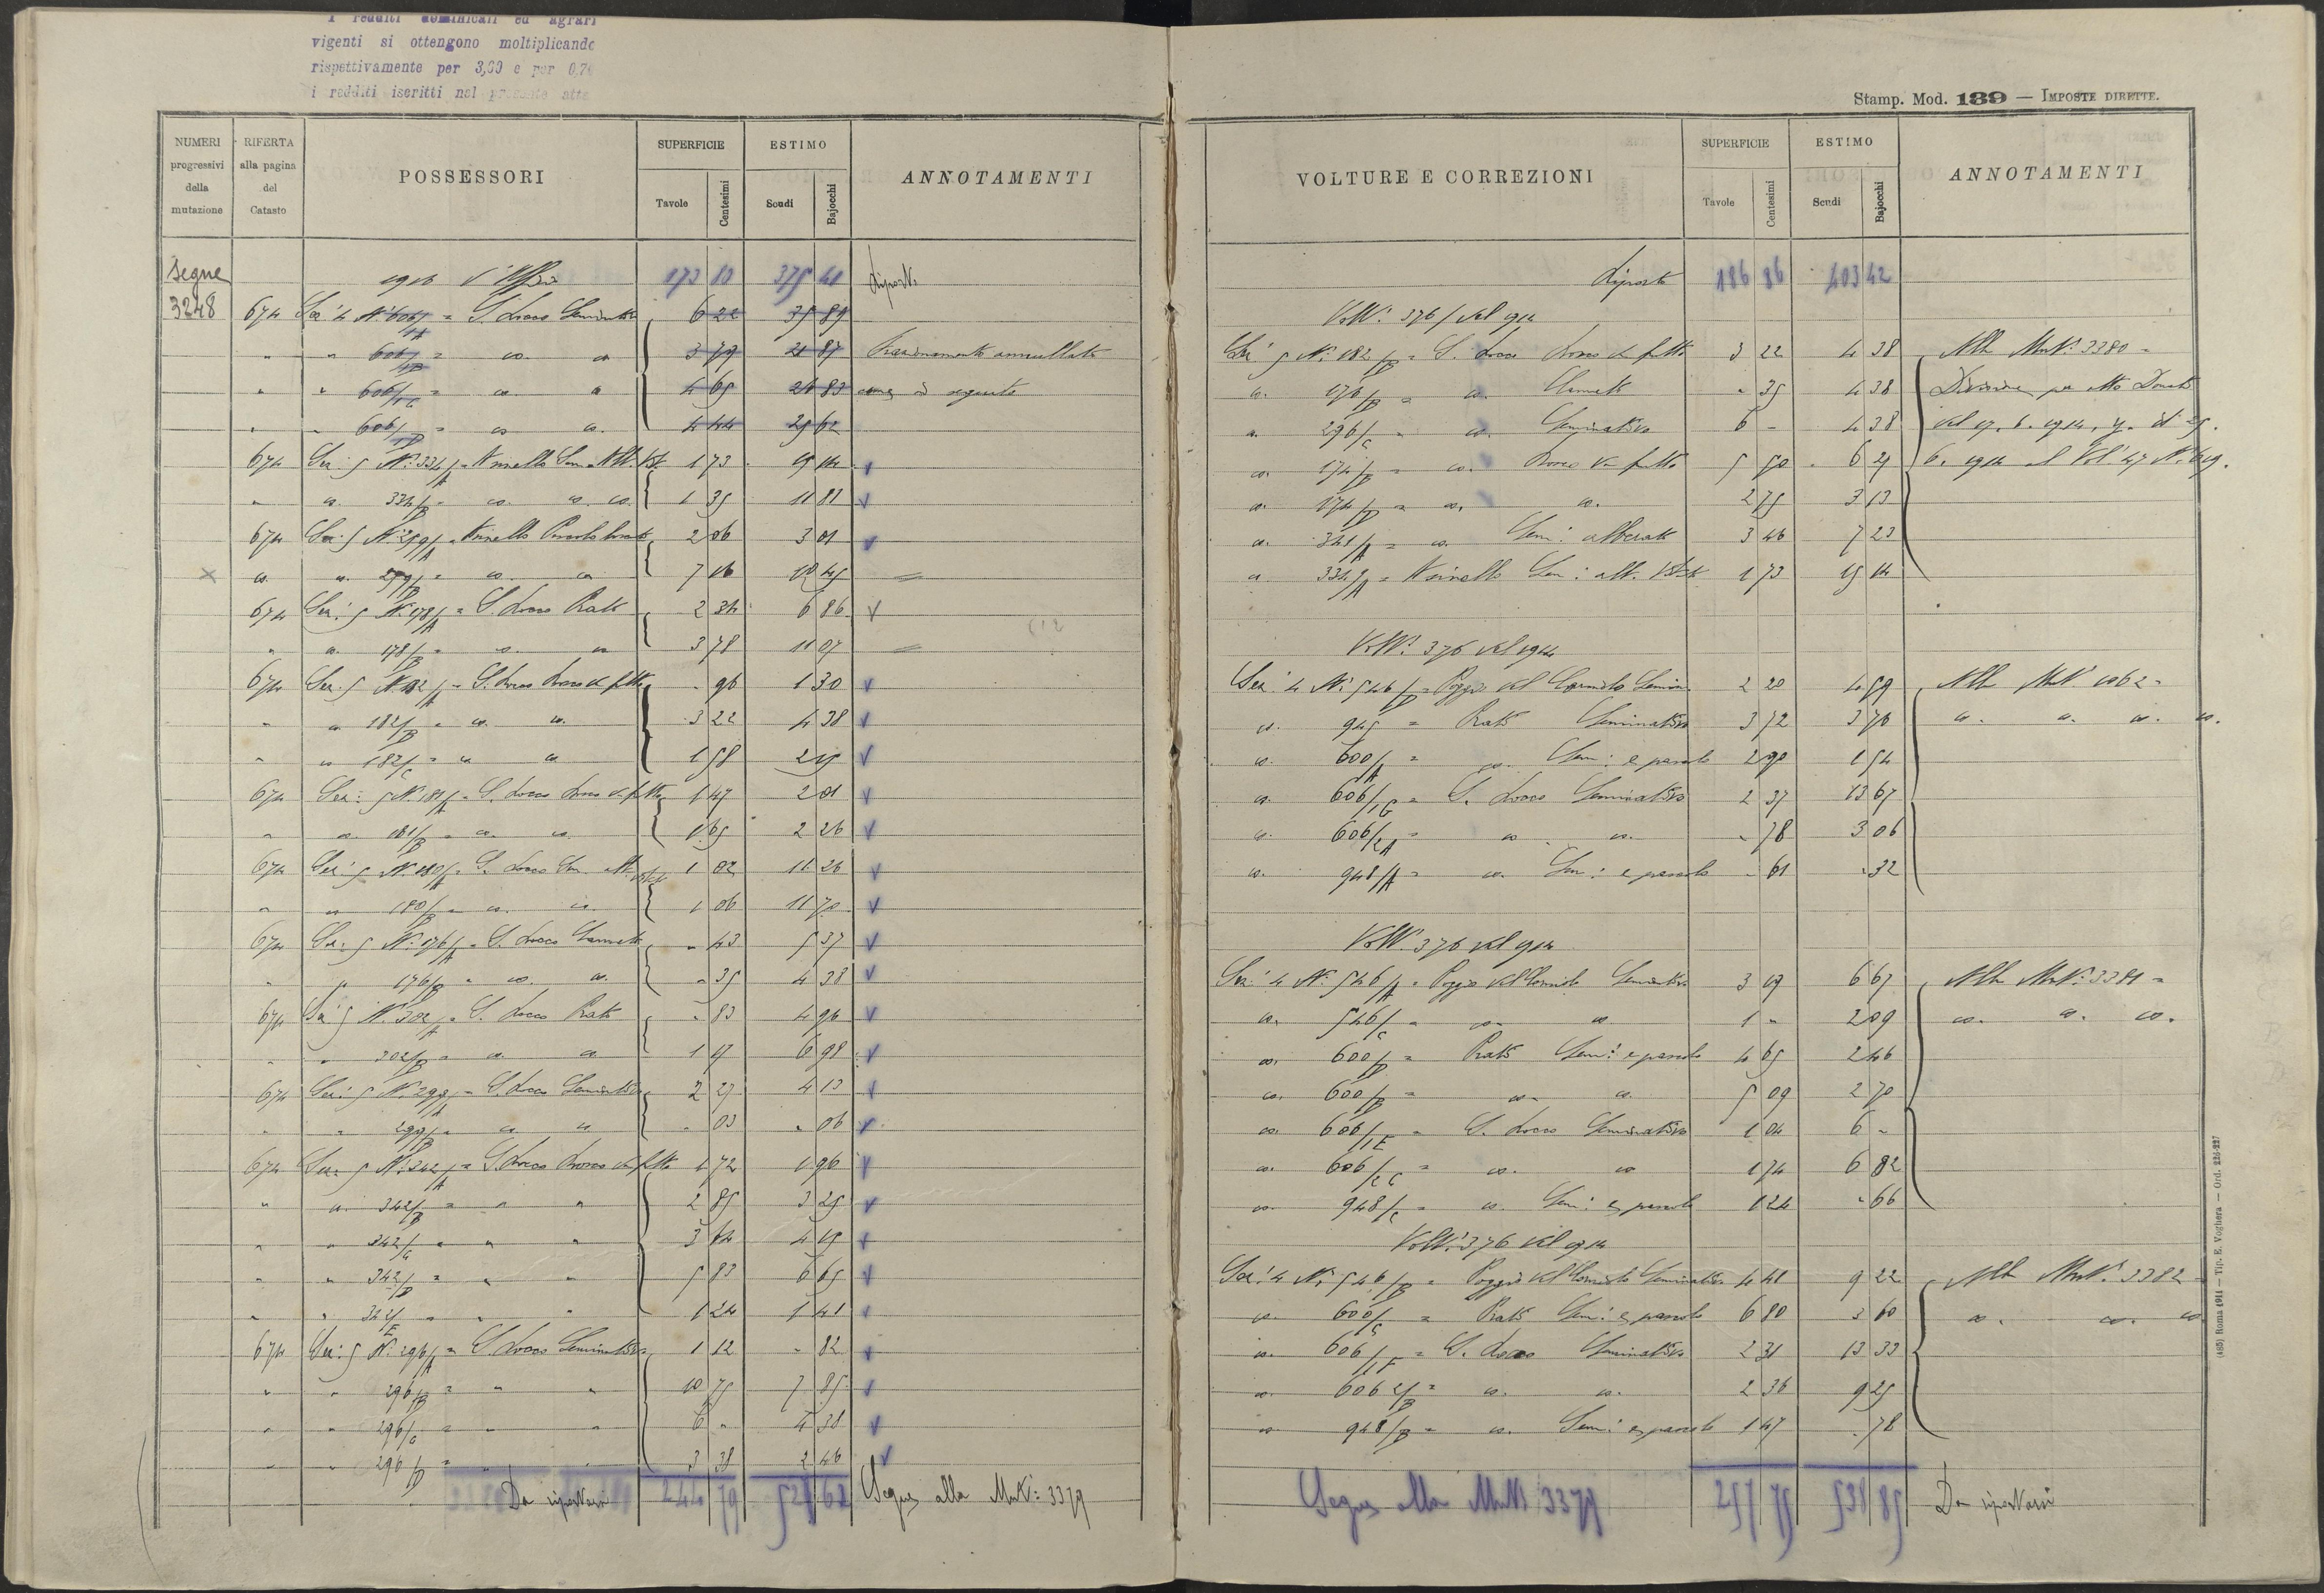 I redditi dominicali ed agrari
vigenti si ottengono moltiplicando
rispettivamente per 3,60 e per 0,7
i redditi iscritti nel presente atto
NUMERI progressivi della mutazione
RIFERTA alla pagina del Catasto
POSSESSORI
SUPERFICIE
Tavole
Centesimi
ESTIMO
Scudi
Bajocchi
ANNOTAMENTI
Segue 1916 173 10 375 41 Riporto
3248 674 Sez: 4 N: 606/1A = S. Rocco Seminativo 6 22 35 89
" " 606/1B = co. co 3 79 21 87 Frazionamento annullato
" " 606/1C = co a 4 65 26 83 come in seguito
" " 606/1D = co co. 4 44 25 62
674 Sez: 5 N: 334/A = 1 73 15 14 v
" co. 334/B = co. co. co. 1 35 11 81 v
674 Sez: 5 N: 259/A = 2 06 3 01 v
co. " = co. co 7 16 10 45 =
674 Sez: 5 N: 178/A = S. Rocco Prato 2 34 6 86 v
" a. 178/B = co. co 3 78 11 07 =
674 Sez: 5 N. 182/A = S. Rocco Bosco da frutto " 96 1 30 v
" a 182/B = co. co. 3 22 4 38 v
" a 182/C = a a 1 58 2 15 v
674 Sez: 5 N. 181/A = S. Rocco Bosco da frutto 1 47 2 01 v
" a. 181/B = co. co. 1 65 2 26 v
674 Sez: 5 N. 180/A = S. Rocco Sem. alb. vitato 1 02 11 26 v
" a 180/B = co. co. 1 06 11 70 v
674 Sez: 5 N: 176/A = S. Rocco Canneto " 43 5 37 v
" " 176/B = co. co. " 35 4 38 v
674 Sez: 5 N. 302/A = S. Rocco Prato " 83 4 96 v
" " 302/B = co. co 1 17 6 98 v
674 Sez: 5 N. 299/A = S. Rocco Seminativo 2 27 4 13 v
" " 299/B = a a " 03 " 06 v
674 Sez: 5 N: 342/A = S. Rocco Bosco da frutto 1 72 1 96 v
" a. 342/B = " " 2 85 3 25 v
" " 342/C = " " 3 64 4 15 v
" " 342/D = " " 5 83 6 65 v
" " 342/E = " " 1 24 1 41 v
674 Sez: 5 N. 296/A = S. Rocco Seminativo 1 12 " 82 v
" " 296/B = " " 10 75 7 85 v
" " 296/C = " " 6 " 4 38 v
" " 296/D = " " 3 38 2 46 v
Da riportarsi 244 79 521 62 Segue alla Mut: 3379
Stamp. Mod. 139 — IMPOSTE DIRETTE.
VOLTURE E CORREZIONI
SUPERFICIE
Tavole
Centesimi
ESTIMO
Scudi
Bajocchi
ANNOTAMENTI
Riporto 186 86 403 42
Volt: 376 del 914
Sez: 5 N: 182/B = S. Rocco Bosco da frutto 3 22 4 38 Alla Mut: 3380 =
co. 176/B = co. Canneto " 35 4 38 Divisione per atto Donati
a. 296/C = co. Seminativo 6 - 4 38 del 17. 6. 1914, 25.
co. 174/B = co. Bosco da frutto 5 50 6 29 6. 1914 al Vol: 47 N: 619.
a. 174/D = co. co. 2 75 3 13
a. 341/A = co. Sem: alberato 3 46 7 23
a 334/A = Sem: alb. vitato 1 73 15 14
Volt: 376 del 1914
Sez: 4 N: 546/D = Poggio del Corniolo Semin 2 20 4 59 Alla Mut: 1062 =
co. 945 = Prato Seminativo 3 72 3 76 co. a. co. co.
co. 600/A = co. Sem: e pascolo 2 90 1 54
a. 606/1G = S. Rocco Seminativo 2 37 13 67
co. 606/2A = co co. " 78 3 06
co. 948/A = co. Sem: e pascolo " 61 " 32
Volt: 376 del 914
Sez: 4 N: 546/A = Poggio del Corniolo Seminativo 3 19 6 67 Alla Mut: 3381 =
co. 546/C = co. co 1 " 2 09 co. a. co.
co. 600/ = Prato Sem: e pascolo 4 65 2 46
co. 600/ = co. co. 5 09 2 70
co. 606/1E = S. Rocco Seminativo 1 04 6 "
co. 606/2C = co. co 1 74 6 82
co. 948/C = co. Sem: e pascolo 1 24 " 66
Volt: 376 del 914
Sez: 4 N: 546/B = Poggio del Corniolo Seminativo 4 41 9 22 Alla Mut: 3382 =
co. 600/C = Prato Sem: e pascolo 6 80 3 60 a. co. co
co. 606/1F = S. Rocco Seminativo 2 31 13 33
co. 606 2/B = co. co. 2 36 9 25
co 948/B = co. Sem: e pascolo 1 47 " 78
Segue alla Mut: 3379 257 75 538 85 Da riportarsi
(485) Roma 1911 — Tip. E. Voghera — Ord. 226-227